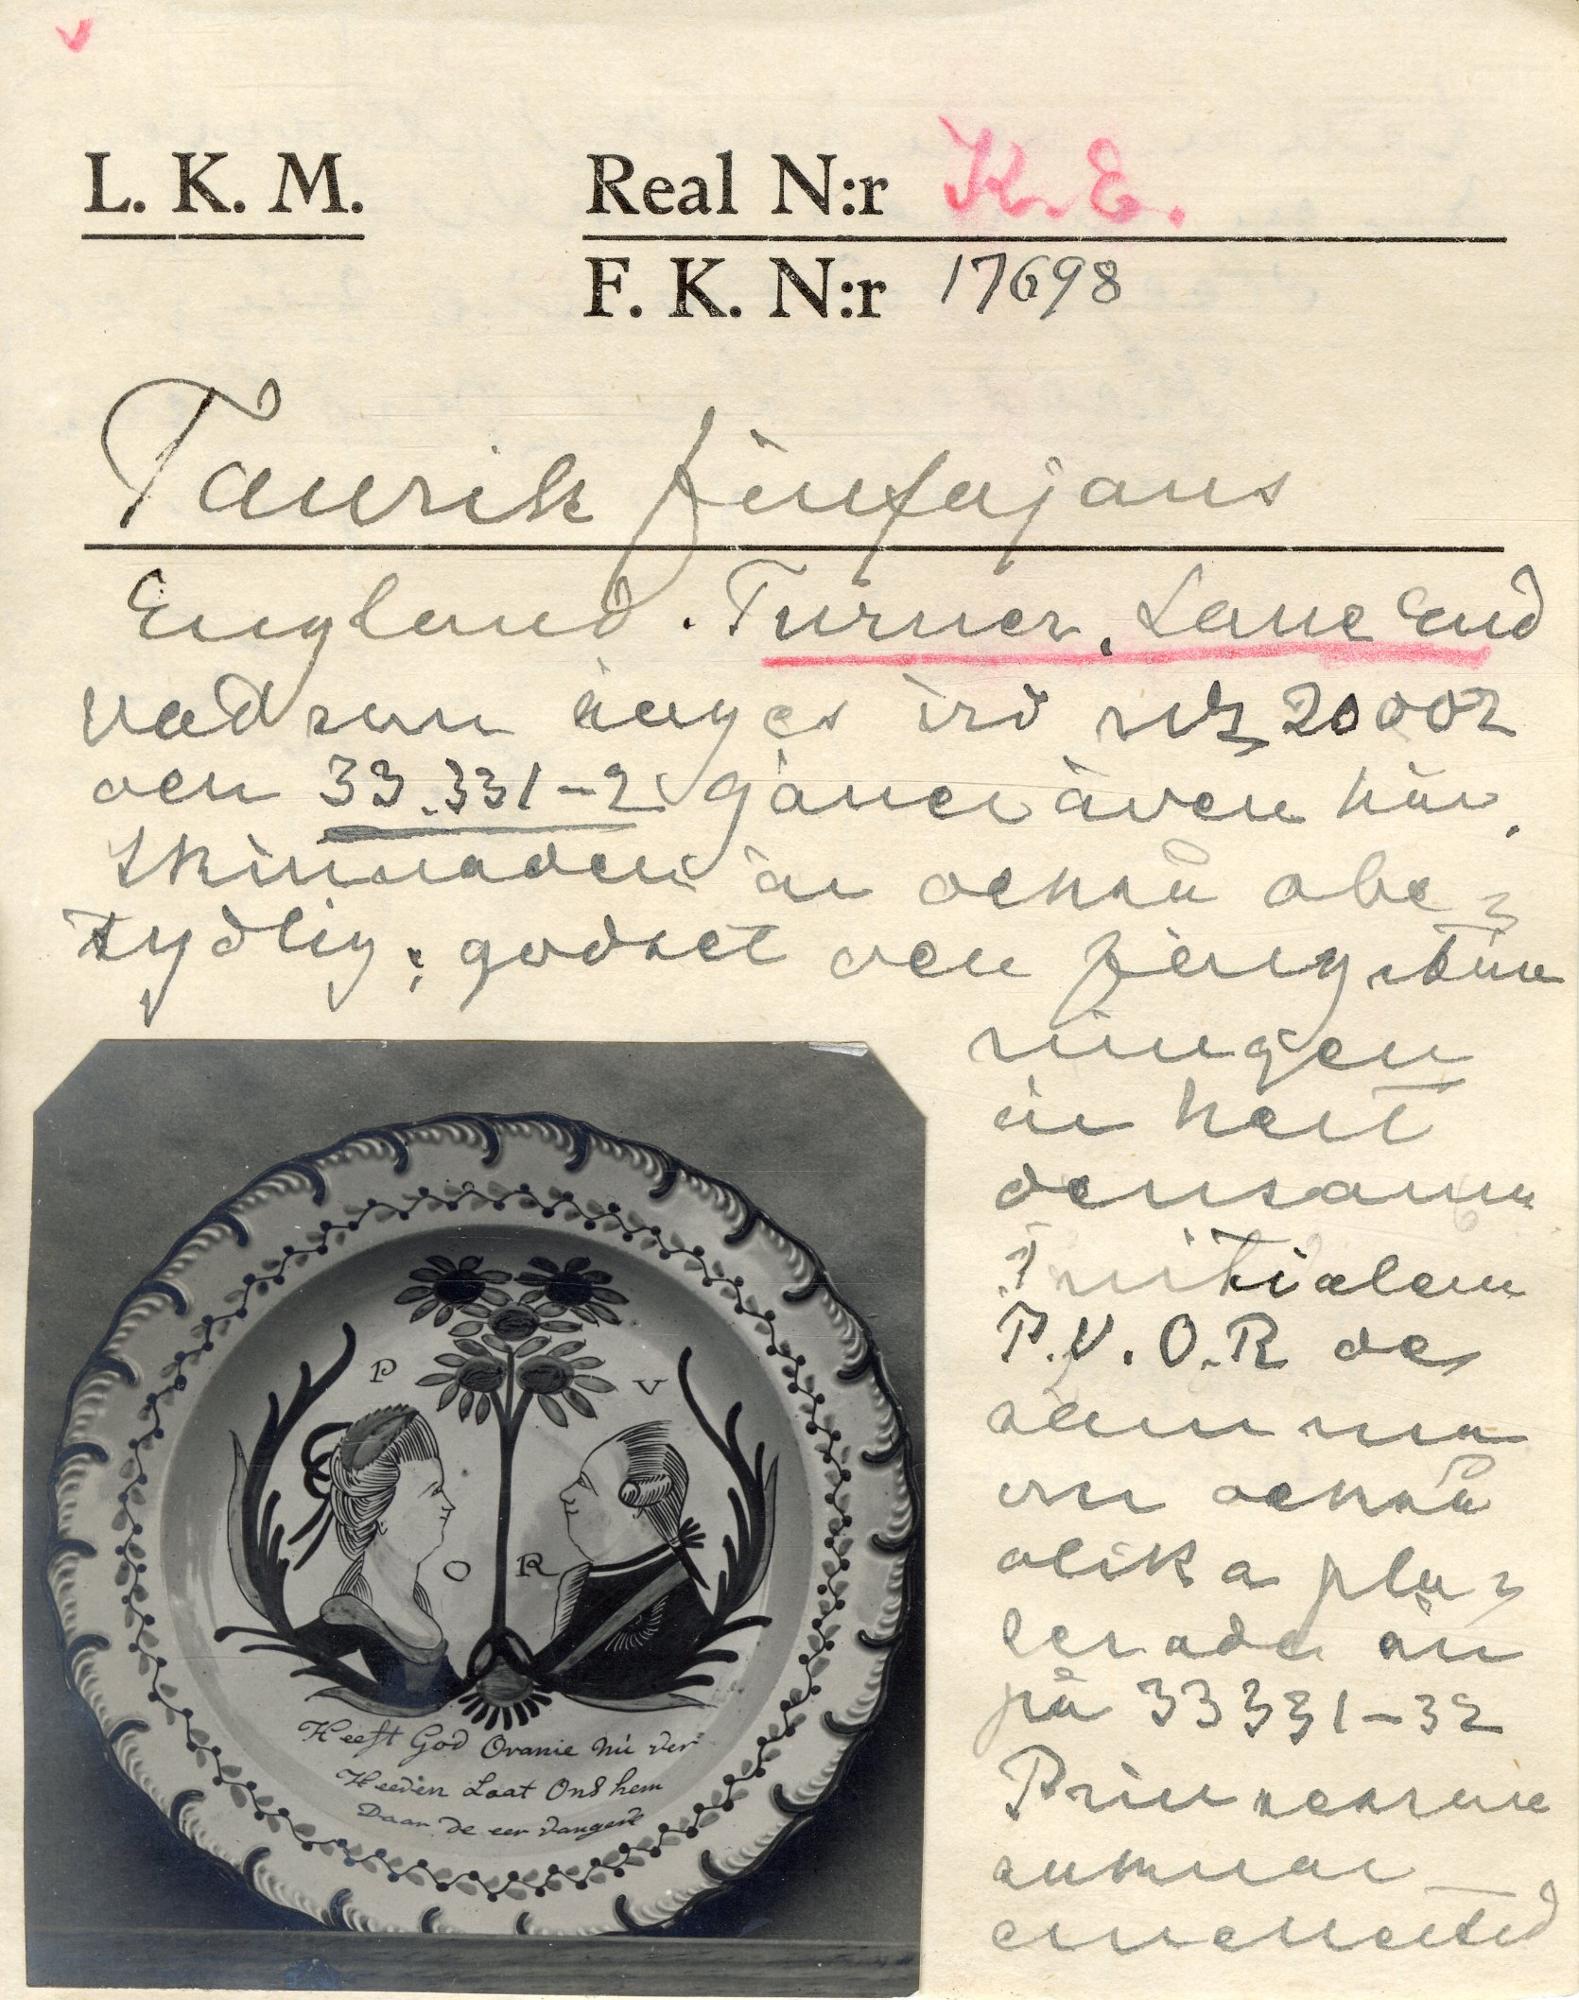 L. K. M.
Real N:r K. E.
F. K. N:r 17698
Tallrik flintfajans
England. Turner, Lane End
vad som säges vid nr 20002
och 33.331-2 gäller även här.
Skillnaden är också obe-
tydlig; godset och färgställ
ningen
är helt
densamma
Initialerna
P.V.O.R de
samma
om också
olika pla-
cerade än
på 33331-32
Prinsessans
P V
O R
Heeft God Oranie Nú Ver
Heeven Laat Ons hem
Daar de eer Vangen